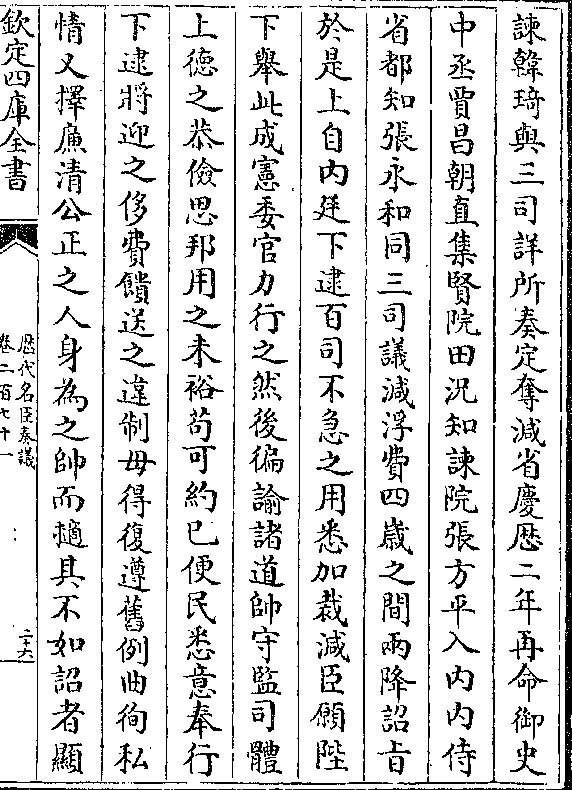 諫韓琦與三司詳所奏定奪減省慶歴二年再命御史
中丞賈昌朝直集賢院田況知諫院張方平入内内侍
省都知張永和同三司議減浮費四歳之間兩降詔旨
於是上自内廷下逮百司不急之用悉加裁減臣願陛
下舉此成憲委官力行之然後徧諭諸道帥守監司體
上徳之恭儉思邦用之未裕苟可約已便民悉意奉行
下逮將迎之侈費饋送之違制毋得復遵舊例曲徇私
情又擇廉清公正之人身為之帥而擿其不如詔者顯
欽定四庫全書
歴代名臣奏議
卷二百七十一
二十六